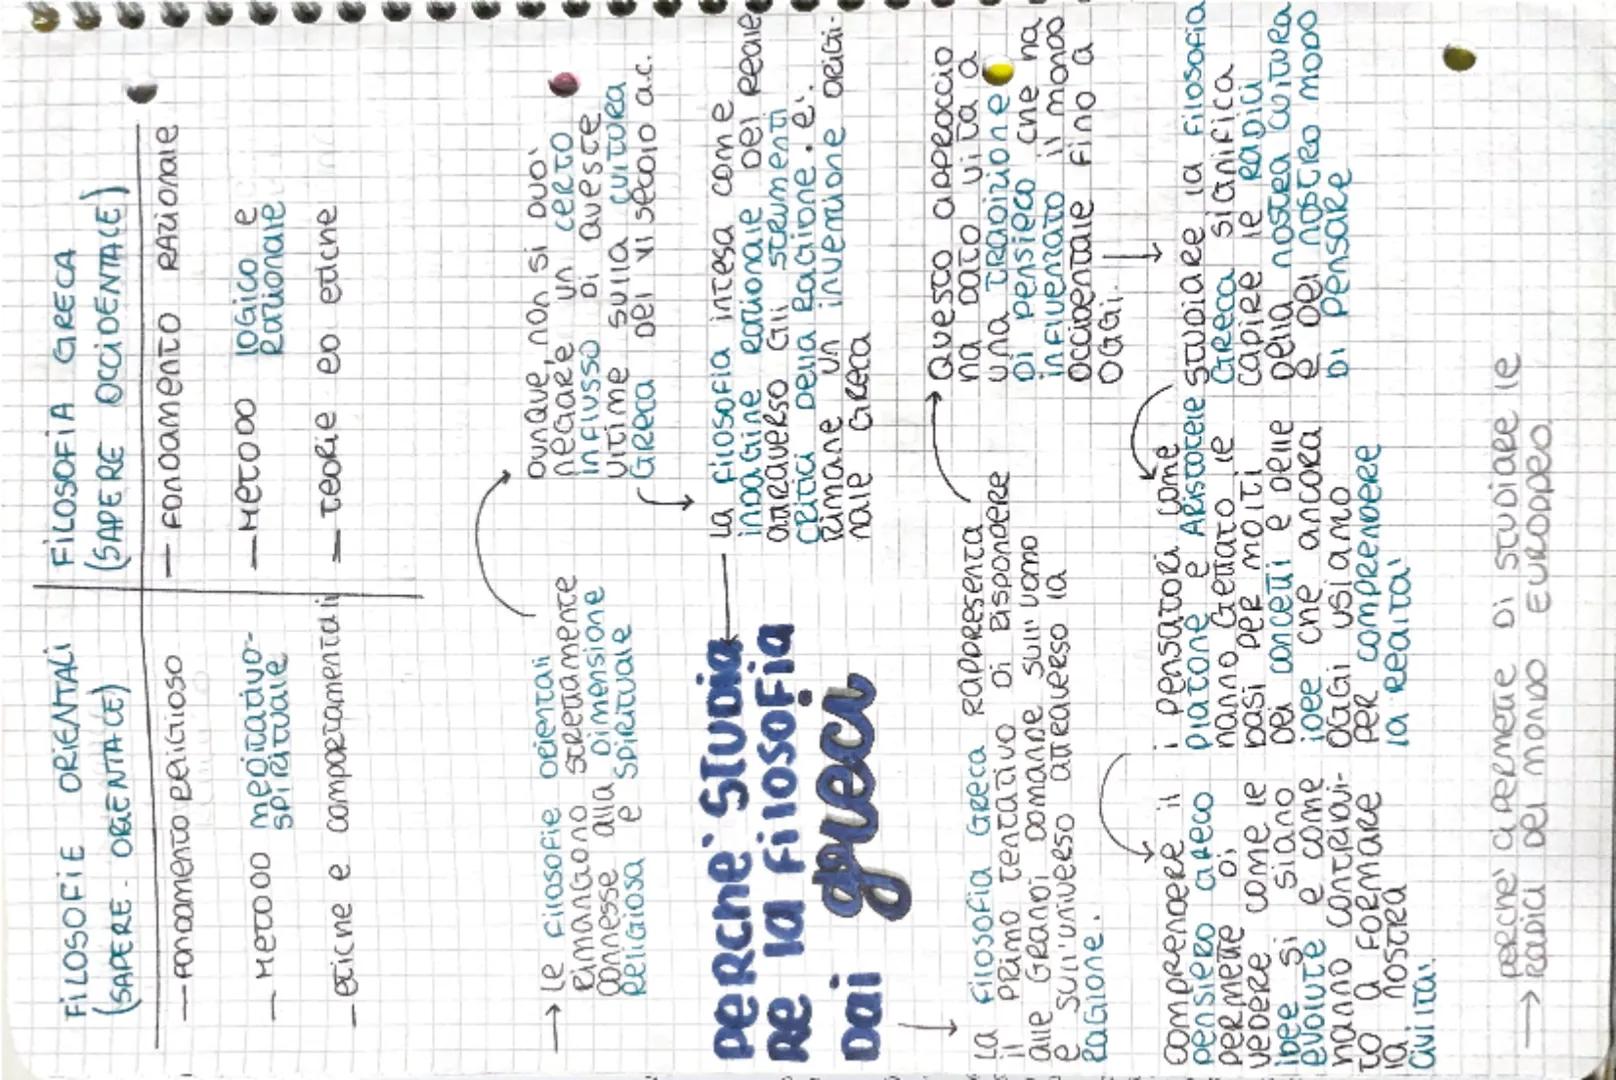 FILOSOFIE ORIENTALI
(SAPERE ORIENTALE)
— FONDAMENTO RELIGIOSO
— METODO MEDITATIVO-
SPIRITUALE
— etiche e comportamentali
FILOSOFIA GRECA
(SAPERE OCCIDENTALE)
— FONDAMENTO RAZIONALE
— METODO LOGICO e
RAZIONALE
— TEORIE ED etiche
→ Le FILOSOFIE ORIENTALI
RIMANGONO STRETTAMENTE
CONNESSE alla DIMENSIONE
RELIGIOSA e SPIRITUALE
DUNQUE, non si può
negare un CERTO
INFLUSSO DI QUESTE
ULTIME SULLA CULTURA
GRECA DEL VI SECOLO a.c.
La FILOSOFIA INTESA COME
INDAGINE RAZIONALE DEL REALE
attraverso GLI STRUMENTI
CRITICI DELLA RAGIONE. è.
RIMANE UN INVENZIONE ORIGI-
NALE GRECA
PERCHE' STUDIA
RE la FILOSOFIA
DAI greci
La FILOSOFIA GRECA RAPPRESENTA
il PRIMO TENTATIVO DI RISPONDERE
alle GRANDI DOMANDE SULL'UOMO
e SULL'UNIVERSO attraverso la
RAGIONE.
QUESTO APPROCCIO
ha DATO VITA a
UNA TRADIZIONE
DI PENSIERO CHE ha
INFLUENZATO il MONDO
OCCIDENTALE FINO a
OGGI.
STUDIARE la FILOSOFIA
GRECA SIGNIFICA
CAPIRE le RADICI
DELLA NOSTRA CULTURA
e DEL NOSTRO MODO
DI PENSARE
i PENSATORI COME
PLATONE e ARISTOTELE
HANNO GETTATO le
BASI PER MOLTI
DEI CONCETTI e DELLE
IDEE CHE ANCORA
OGGI USIAMO
PER COMPRENDERE
la REALTA'
COMPRENDERE il
PENSIERO GRECO
PERMETTE DI
VEDERE COME le
IDEE SI SIANO
EVOLUTE e COME
HANNO CONTRIBUI-
TO a FORMARE
la NOSTRA
CIVILTA'.
→ PERCHE' CI PERMETTE DI STUDIARE le
RADICI DEL MONDO EUROPEO.